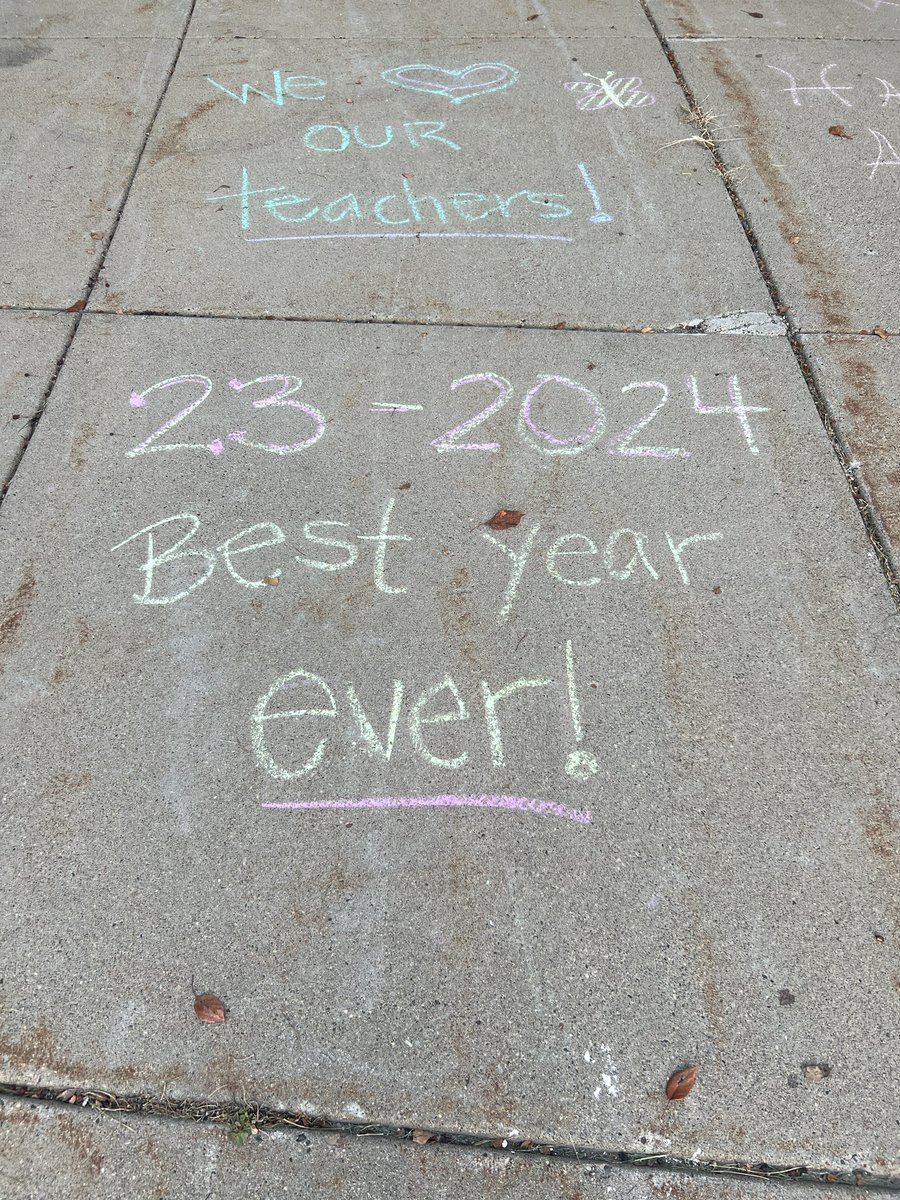 We ♡
OUR
teachers!
23-2024
Best year
ever!